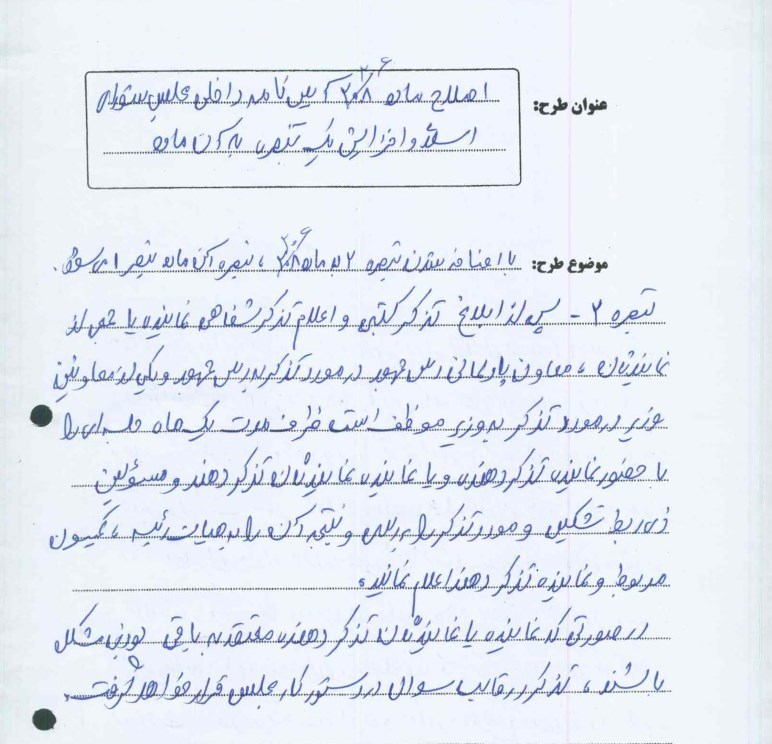 عنوان طرح: اصلاح ماده ۲۰۶ آیین نامه داخلی مجلس شورای
اسلامی و افزایش یک تبصره به آن ماده
موضوع طرح: با اضافه شدن تبصره ۲ به ماده ۲۰۶، تبصره آن ماده تبصره ۱ می‌شود.
تبصره ۲ - پس از ابلاغ تذکر کتبی و اعلام تذکر شفاهی نماینده یا جمعی از
نمایندگان، معاون پارلمانی رئیس جمهور در مورد تذکر به رئیس جمهور و یکی از معاونین
وزیر در مورد تذکر به وزیر موظف است ظرف مدت یک ماه جلسه‌ای را
با حضور نماینده تذکر دهنده و یا نماینده نمایندگان تذکر دهنده و مسؤلین
ذی ربط تشکیل و مورد تذکر را بررسی و نتیجه آن را به هیات رئیسه، کمیسیون
مربوط و نماینده تذکر دهنده اعلام نمایند.
در صورتی که نماینده یا نمایندگان تذکر دهنده معتقد به باقی بودن مشکل
باشند، تذکر در قالب سوال در دستور کار مجلس قرار خواهد گرفت.